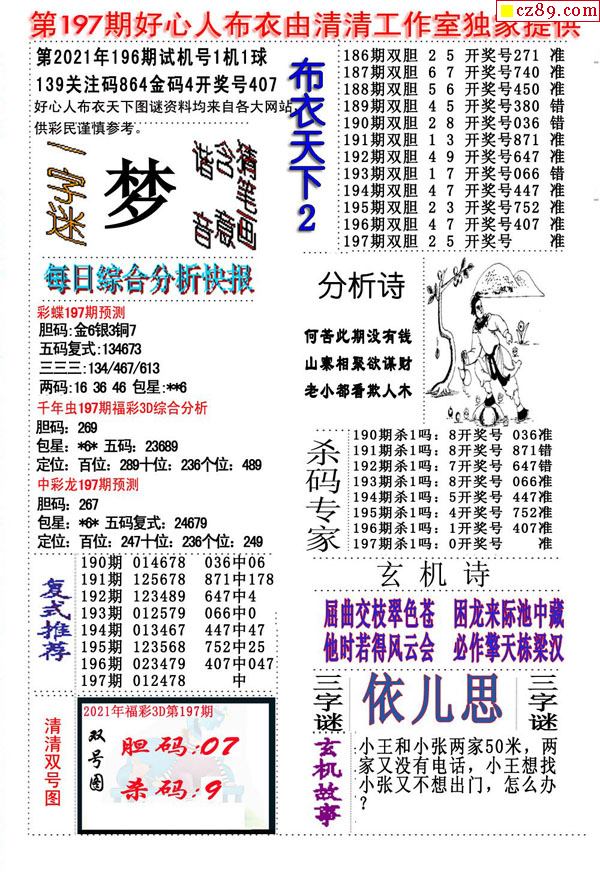 cz89.com
第197期好心人布衣由清清工作室独家提供
第2021年196期试机号1机1球
139关注码864金码4开奖号407
好心人布衣天下图谜资料均来自各大网站,
供彩民谨慎参考。
一字迷
梦
谐音 含意 猜笔画
布衣天下2
186期双胆 2 5 开奖号271 准
187期双胆 6 7 开奖号740 准
188期双胆 5 6 开奖号450 准
189期双胆 4 5 开奖号380 错
190期双胆 2 8 开奖号036 错
191期双胆 1 3 开奖号871 准
192期双胆 4 9 开奖号647 准
193期双胆 1 7 开奖号066 错
194期双胆 4 7 开奖号447 准
195期双胆 2 3 开奖号752 准
196期双胆 4 7 开奖号407 准
197期双胆 2 5 开奖号 准
每日综合分析快报
彩蝶197期预测
胆码:金6银3铜7
五码复式:134673
三三三:134/467/613
两码:16 36 46 包星:**6
千年虫197期福彩3D综合分析
胆码: 269
包星: *6* 五码: 23689
定位: 百位: 289十位: 236个位: 489
中彩龙197期预测
胆码: 267
包星: *6* 五码复式: 24679
定位: 百位: 247十位: 236个位: 249
分析诗
何苦此期没有钱
山寨相聚欲谋财
老小都看欺人木
杀码专家
190期杀1吗: 8开奖号 036准
191期杀1吗: 8开奖号 871错
192期杀1吗: 7开奖号 647错
193期杀1吗: 8开奖号 066准
194期杀1吗: 5开奖号 447准
195期杀1吗: 4开奖号 752准
196期杀1吗: 1开奖号 407准
197期杀1吗: 0开奖号 准
复式推荐
190期 014678 036中06
191期 125678 871中178
192期 123489 647中4
193期 012579 066中0
194期 013467 447中47
195期 123568 752中25
196期 023479 407中047
197期 012478 中
玄机诗
屈曲交枝翠色苍 困龙来际池中藏
他时若得风云会 必作擎天栋梁汉
三字谜
依儿思
三字谜
清清双号图
2021年福彩3D第197期
双号图
胆码:07
杀码:9
玄机故事
小王和小张两家50米,两
家又没有电话,小王想找
小张又不想出门,怎么办
?